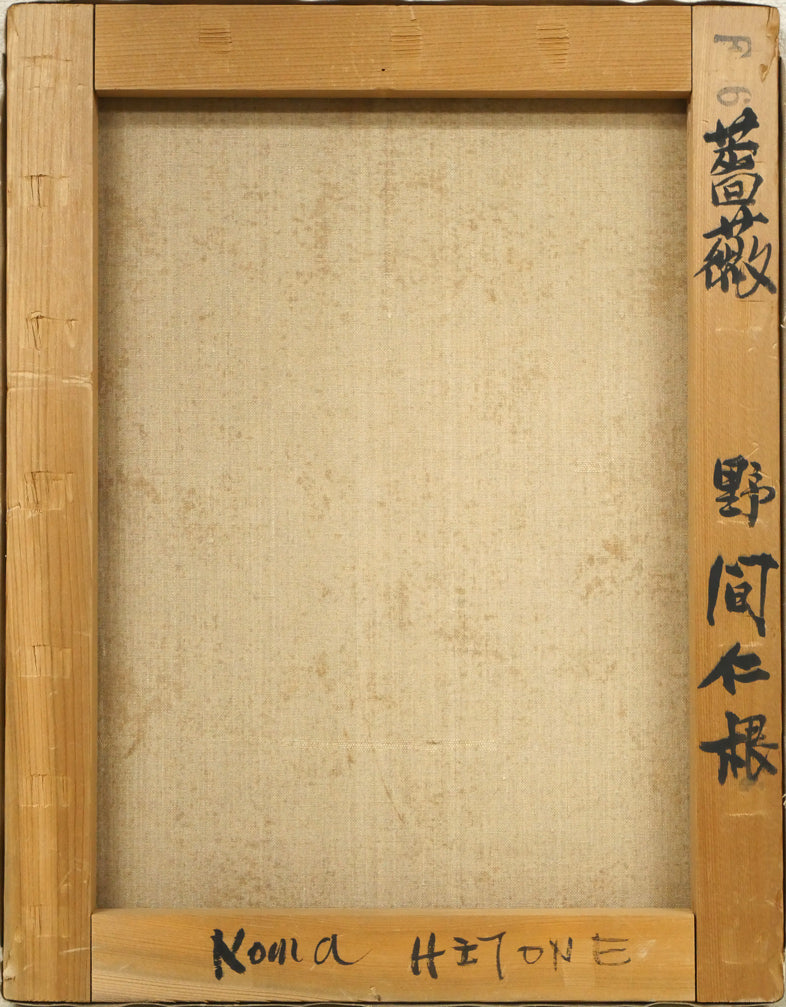 F6
薔薇
野間仁根
Noma HITONE